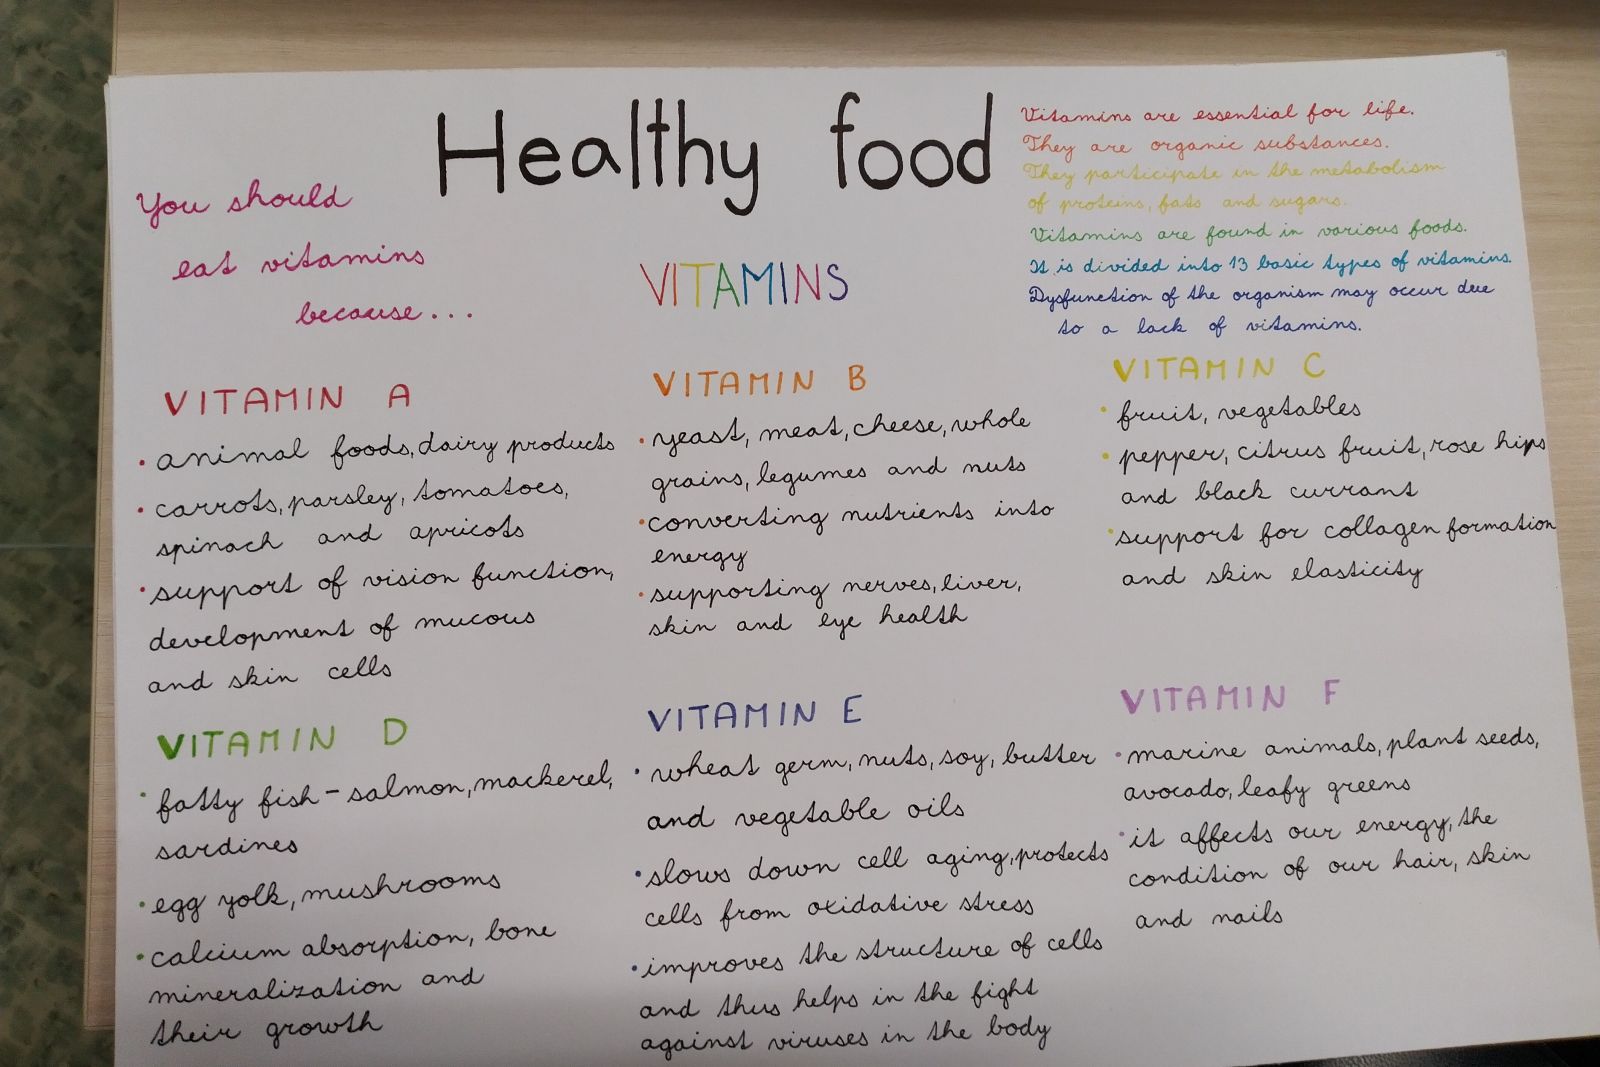 Healthy food
You should
eat vitamins
because...
VITAMINS
Vitamins are essential for life.
They are organic substances.
They participate in the metabolism
of proteins, fats and sugars.
Vitamins are found in various foods.
It is divided into 13 basic types of vitamins.
Dysfunction of the organism may occur due
to a lack of vitamins.
VITAMIN A
• animal foods, dairy products
• carrots, parsley, tomatoes,
spinach and apricots
• support of vision function,
development of mucous
and skin cells
VITAMIN B
• yeast, meat, cheese, whole
grains, legumes and nuts
• converting nutrients into
energy
• supporting nerves, liver,
skin and eye health
VITAMIN C
• fruit, vegetables
• pepper, citrus fruit, rose hips
and black currant
• support for collagen formation
and skin elasticity
VITAMIN D
• fatty fish - salmon, mackerel,
sardines
• egg yolk, mushrooms
• calcium absorption, bone
mineralization and
their growth
VITAMIN E
• wheat germ, nuts, soy, butter
and vegetable oils
• slows down cell aging, protects
cells from oxidative stress
• improves the structure of cells
and thus helps in the fight
against viruses in the body
VITAMIN F
• marine animals, plant seeds,
avocado, leafy greens
• it affects our energy, the
condition of our hair, skin
and nails